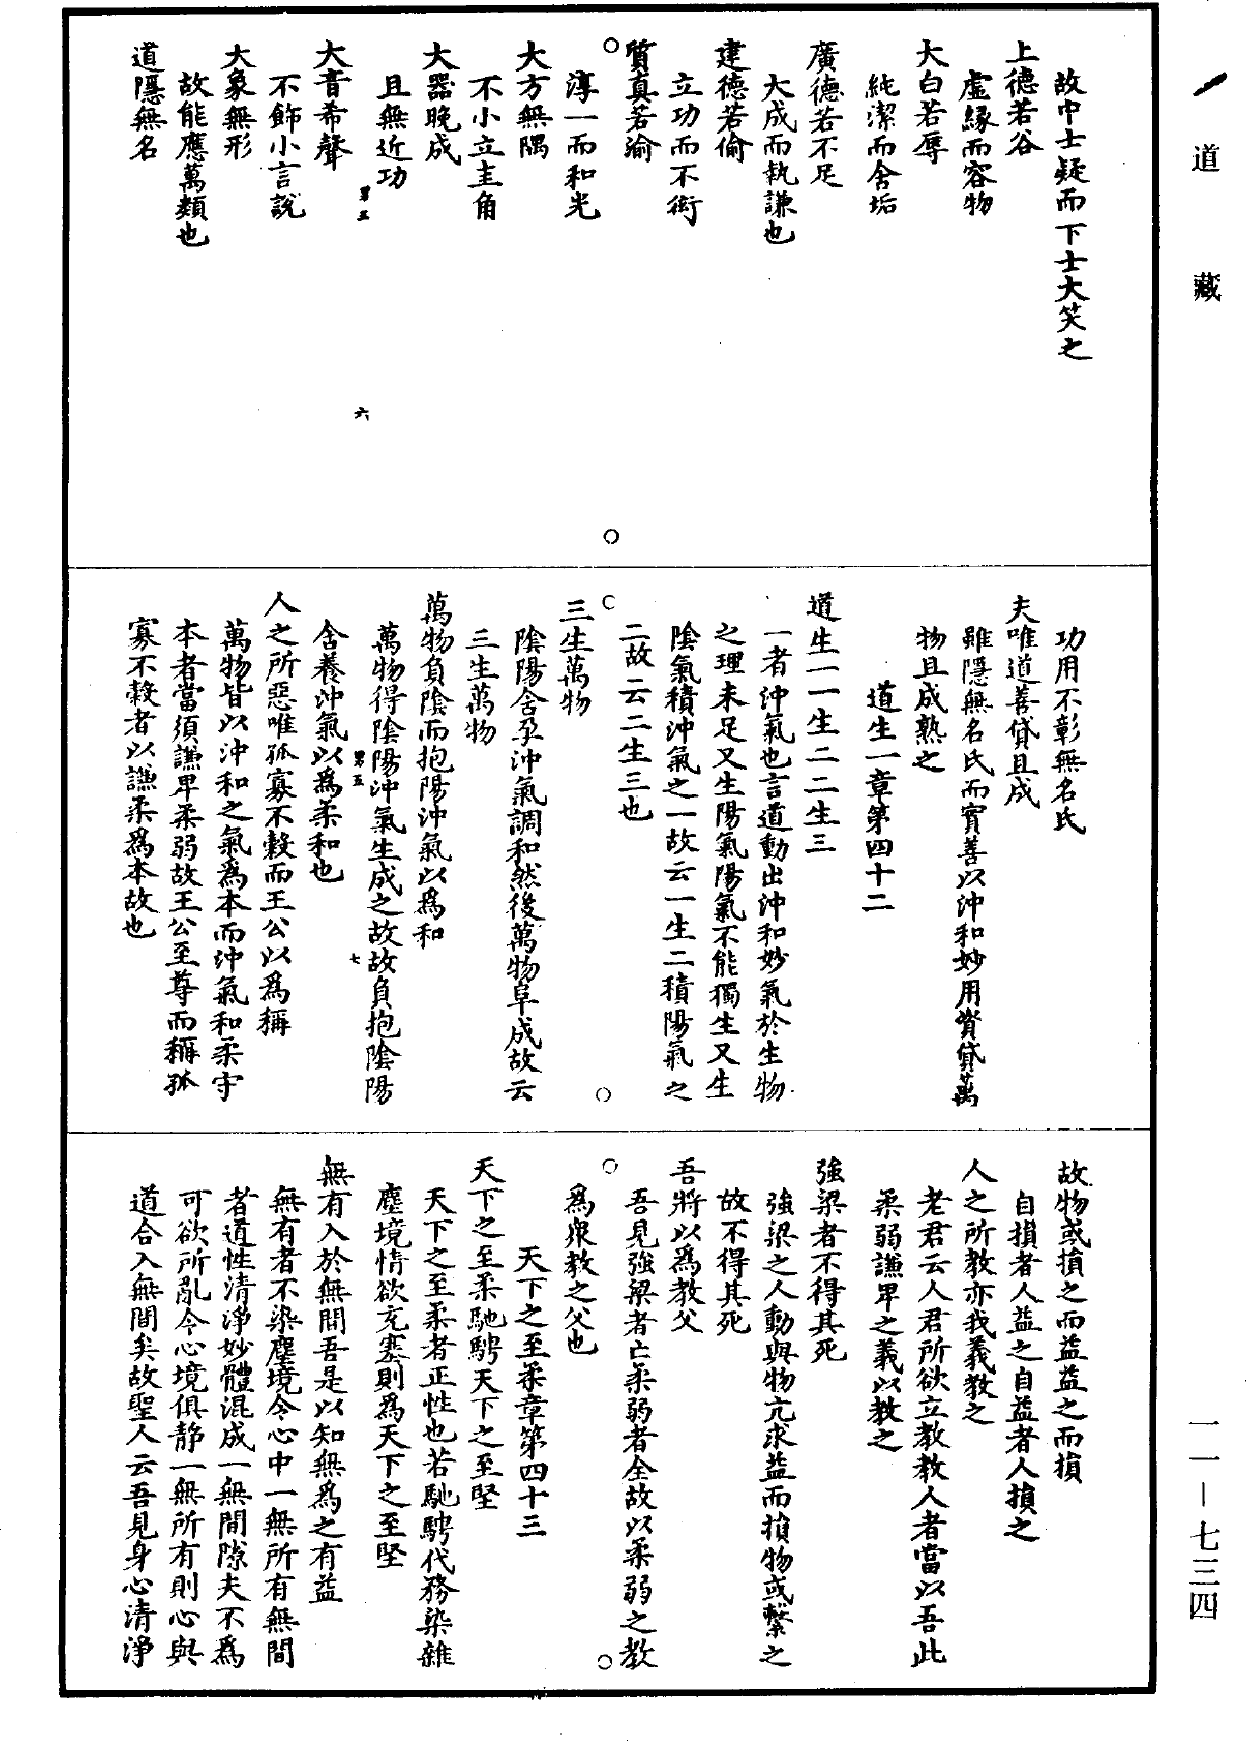 道藏
故中士疑而下士大笑之
上德若谷
虛緣而容物
大白若辱
純潔而含垢
廣德若不足
大成而執謙也
建德若偷
立功而不衒
質真若渝
淳一而和光
大方無隅
不小立圭角
大器晚成
且無近功
第五
六
大音希聲
不飾小言說
大象無形
故能應萬類也
道隱無名
功用不彰無名氏
夫唯道善貸且成
雖隱無名氏而實善以沖和妙用資貸萬
物且成熟之
道生一章第四十二
道生一一生二二生三
一者沖氣也言道動出沖和妙氣於生物
之理未足又生陽氣陽氣不能獨生又生
陰氣積沖氣之一故云一生二積陽氣之
二故云二生三也
三生萬物
陰陽含孕沖氣調和然後萬物阜成故云
三生萬物
萬物負陰而抱陽沖氣以為和
萬物得陰陽沖氣生成之故故負抱陰陽
第五
七
含養沖氣以為柔和也
人之所惡唯孤寡不穀而王公以為稱
萬物皆以沖和之氣為本而沖氣和柔守
本者當須謙卑柔弱故王公至尊而稱孤
寡不穀者以謙柔為本故也
故物或損之而益益之而損
自損者人益之自益者人損之
人之所教亦我義教之
老君云人君所欲立教教人者當以吾此
柔弱謙卑之義以教之
強梁者不得其死
強梁之人動與物亢求益而損物或繫之
故不得其死
吾將以為教父
吾見強梁者亡柔弱者全故以柔弱之教
為眾教之父也
天下之至柔章第四十三
天下之至柔馳騁天下之至堅
天下之至柔者正性也若馳騁代務染雜
塵境情欲充塞則為天下之至堅
無有入於無間吾是以知無為之有益
無有者不染塵境令心中一無所有無間
者道性清淨妙體混成一無間隙夫不為
可欲所亂令心境俱靜一無所有則心與
道合入無間矣故聖人云吾見身心清淨
一一－七三四